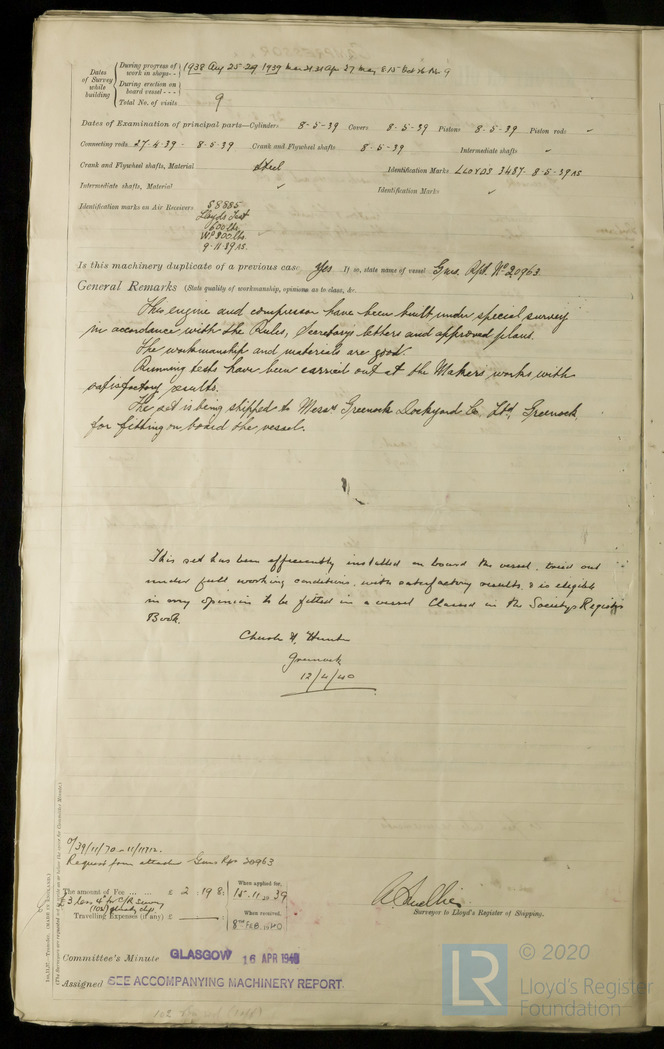 Dates of Survey while building
During progress of work in shops - - 1938 Aug 25-29 1939 Mar 21.31 Apr 27 May 8.15 Oct 26 Nov 9
During erection on board vessel - - -
Total No. of visits 9
Dates of Examination of principal parts—Cylinders 8-5-39 Covers 8-5-39 Pistons 8-5-39 Piston rods ✓
Connecting rods 27-4-39 - 8-5-39 Crank and Flywheel shafts 8-5-39 Intermediate shafts ✓
Crank and Flywheel shafts, Material Steel Identification Marks LLOYDS 3487. 8-5-39
Intermediate shafts, Material ✓ Identification Marks ✓
Identification marks on Air Receivers 58885
Lloyds Test
600 lbs
W.P. 300 lbs
9-11-39
Is this machinery duplicate of a previous case Yes If so, state name of vessel Rpt. No 20963
General Remarks (State quality of workmanship, opinions as to class, &c.
This engine and compressor have been built under special survey
in accordance with the Rules, Secretarys letters and approved plans.
The workmanship and materials are good.
Running tests have been carried out at the Makers works with
satisfactory results.
The set is being shipped to Messrs Greenock Dockyard Co. Ltd, Greenock,
for fitting on board the vessel.
This set has been efficiently installed on board the vessel, tried out
under full working conditions, with satisfactory results, & is eligible
in my opinion to be fitted in a vessel Classed in the Society's Register
Book.
Greenock
12/4/40
Request form attached 20963
The amount of Fee ... ... £ 2 . 19 8 : When applied for, 15.11.1939
Travelling Expenses (if any) £ When received, 8th FEB. 1940
Surveyor to Lloyd's Register of Shipping.
Committee's Minute GLASGOW 16 APR 1940
Assigned SEE ACCOMPANYING MACHINERY REPORT.
© 2020
LR
Lloyd's Register
Foundation